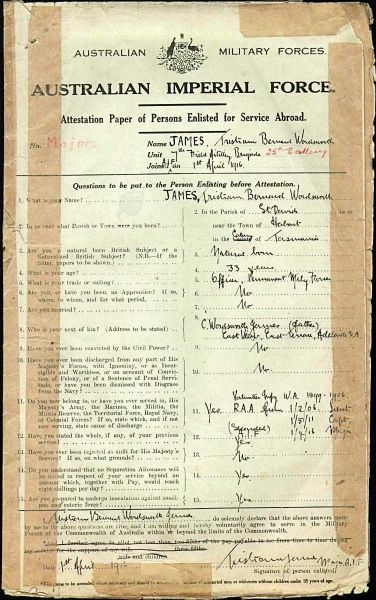 AUSTRALIAN MILITARY FORCES.
AUSTRALIAN IMPERIAL FORCE.
Attestation Paper of Persons Enlisted for Service Abroad.
No. Major. Name JAMES, Tristram Bernard Wordsworth
Unit 7th Field Artillery Brigade 25th Battery
Joined A.I.F. on 1st April 1916.
Questions to be put to the Person Enlisting before Attestation.
1. What is your Name? JAMES, Tristram Bernard Wordsworth
2. In or near what Parish or Town were you born? 2. In the Parish of St Davids in or
near the Town of Hobart
in the Colony of Tasmania
3. Are you a natural born British Subject or a Naturalized British Subject? (N.B.—If the latter, papers to be shown.) 3. Natural born
4. What is your age? 4. 33 years
5. What is your trade or calling? 5. Officer, Permanent Mily Forces
6. Are you, or have you been, an Apprentice? If so, where, to whom, and for what period? 6. No
7. Are you married? 7. No
8. Who is your next of kin? (Address to be stated) 8. C. Wordsworth James (father)
Adelaide S.A.
9. Have you ever been convicted by the Civil Power? 9. No
10. Have you ever been discharged from any part of His
Majesty's Forces, with Ignominy, or as Incor-
rigible and Worthless, or on account of Convic-
tion of Felony, or of a Sentence of Penal Servi-
tude, or have you been dismissed with Disgrace
from the Navy? 10. No
11. Do you now belong to, or have you ever served in, His
Majesty's Army, the Marines, the Militia, the
Militia Reserve, the Territorial Force, Royal Navy,
or Colonial Forces? If so, state which, and if not
now serving, state cause of discharge 11. Yes.
W.A.
RAA from 1/2/06. Lieut
1/5/11 Capt.
Major
12. Have you stated the whole, if any, of your previous
service? 12. Yes
13. Have you ever been rejected as unfit for His Majesty's
Service? If so, on what grounds? 13. No
14. Do you understand that no Separation Allowance will
be issued in respect of your service beyond an
amount which, together with Pay, would reach
eight shillings per day? 14. Yes
15. Are you prepared to undergo inoculation against small-
pox and enteric fever? 15. Yes
I, Tristram Bernard Wordsworth James do solemnly declare that the above answers made
by me to the above questions are true, and I am willing and hereby voluntarily agree to serve in the Military
Forces of the Commonwealth of Australia within or beyond the limits of the Commonwealth.
*And I further agree to allot not less than two-fifths of the pay payable to me from time to time during
three-fifths
my service for the support of my wife
wife and children
Date 1st April 1916
Tristram James Major A.I.F.
Signature of person enlisted.